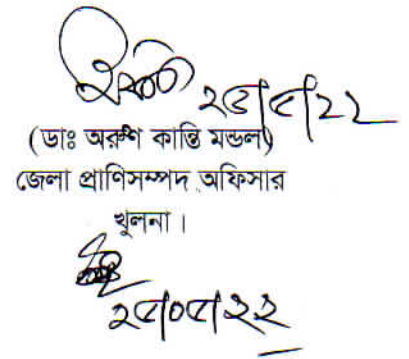 ২৫|৫|২২
(ডাঃ অরুণ কান্তি মন্ডল)
জেলা প্রাণিসম্পদ অফিসার
খুলনা।
২৫|০৫|২২